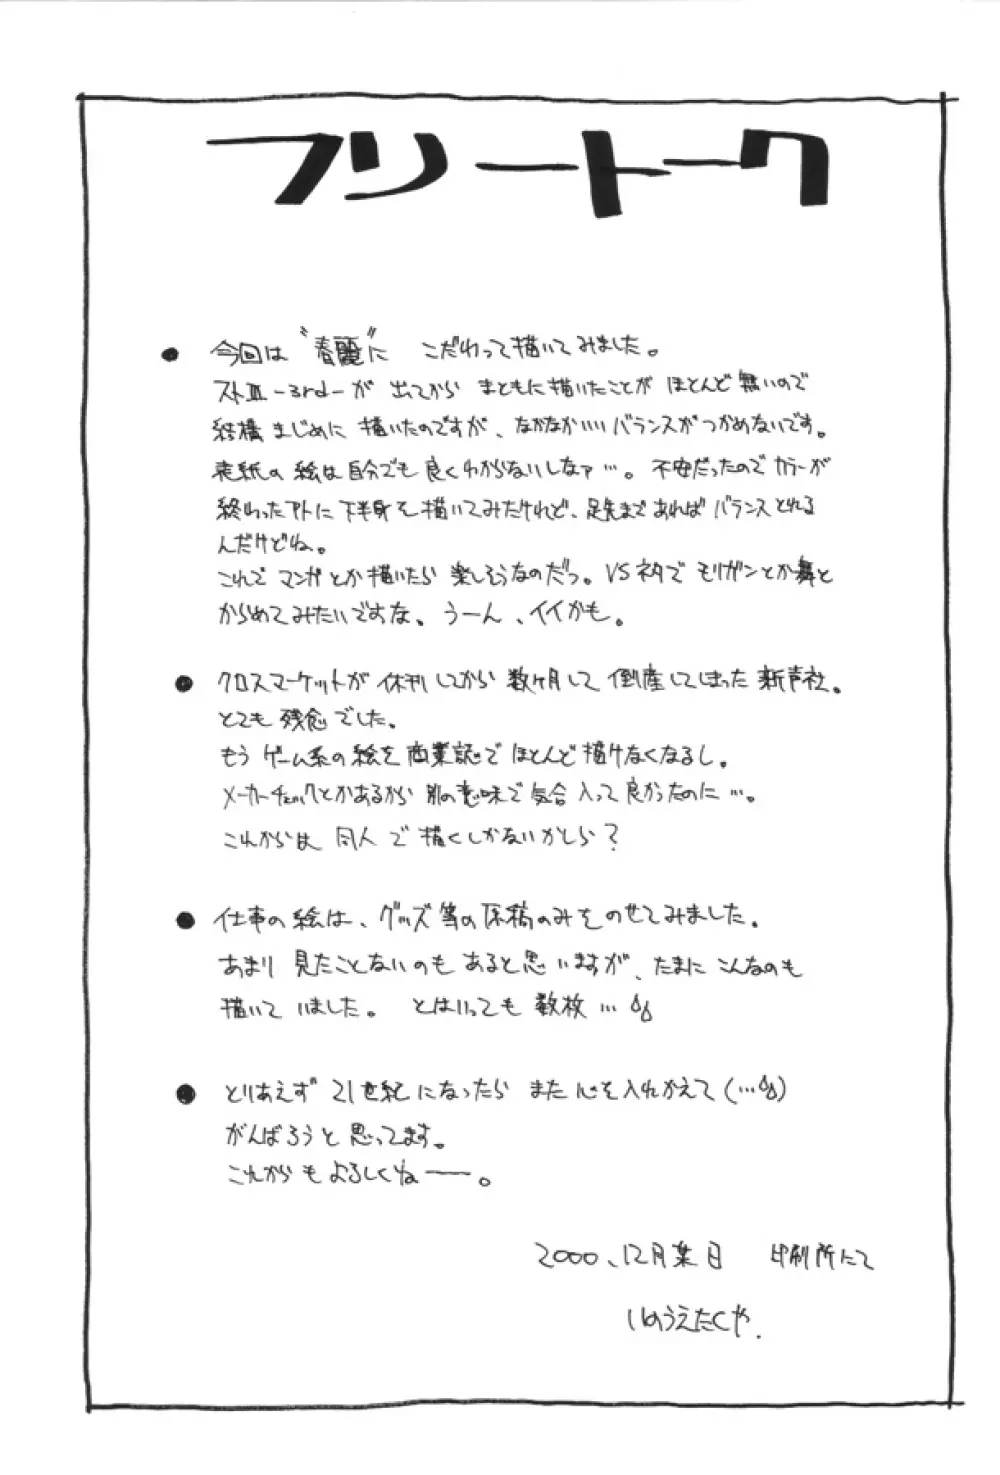 フリートーク
● 今回は〝春麗〟に こだわって描いてみました。
ストⅢ-3rd-が 出てから まともに描いたことが ほとんど無いので
結構まじめに 描いたのですが、なかなかいいバランスがつかめないです。
表紙の絵は自分でも良くわからないしなァ…。不安だったのでカラーが
終わった下に下半身を描いてみたけれど、足先まであればバランスとれる
んだけどね。
これでマンガとか描いたら 楽しそうなのだっ。VSネタで モリガンとか舞と
からめてみたいですな、うーん、イイかも。
● クロスマーケットが 休刊してから 数ヶ月して 倒産してしまった 新声社。
とても 残念でした。
もう ゲーム系の絵を 商業誌で ほとんど 描けなくなるし。
メーカーチェックとかあるから 別の意味で 気合入って良かったのに…。
これからは 同人で 描くしかないかしら?
● 仕事の絵は、グッズ等の原稿のみをのせてみました。
あまり 見たことないのも あると思いますが、たまに こんなのも
描いていました。 とはいっても 数枚…
● とりあえず 21世紀になったら また 心を入れかえて(…)
がんばろうと思ってます。
これからもよろしくねー。
2000、12月某日 印刷所にて
いのうえたくや.